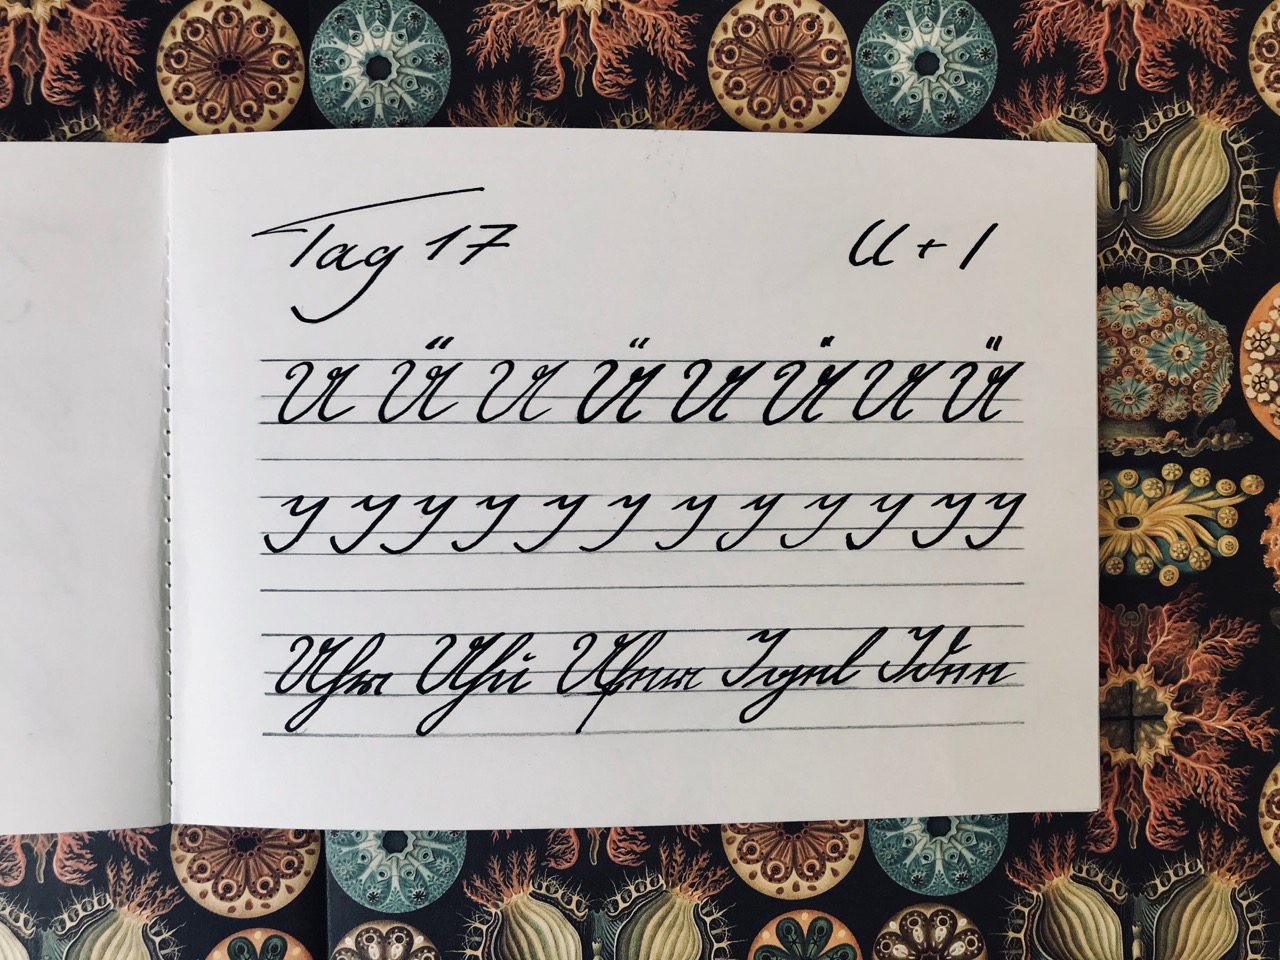 Tag 17 U + I
U Ü U Ü U Ü U Ü
I I I I I I I I I I I I
Uhr Uhu Ufer Igel Ideen